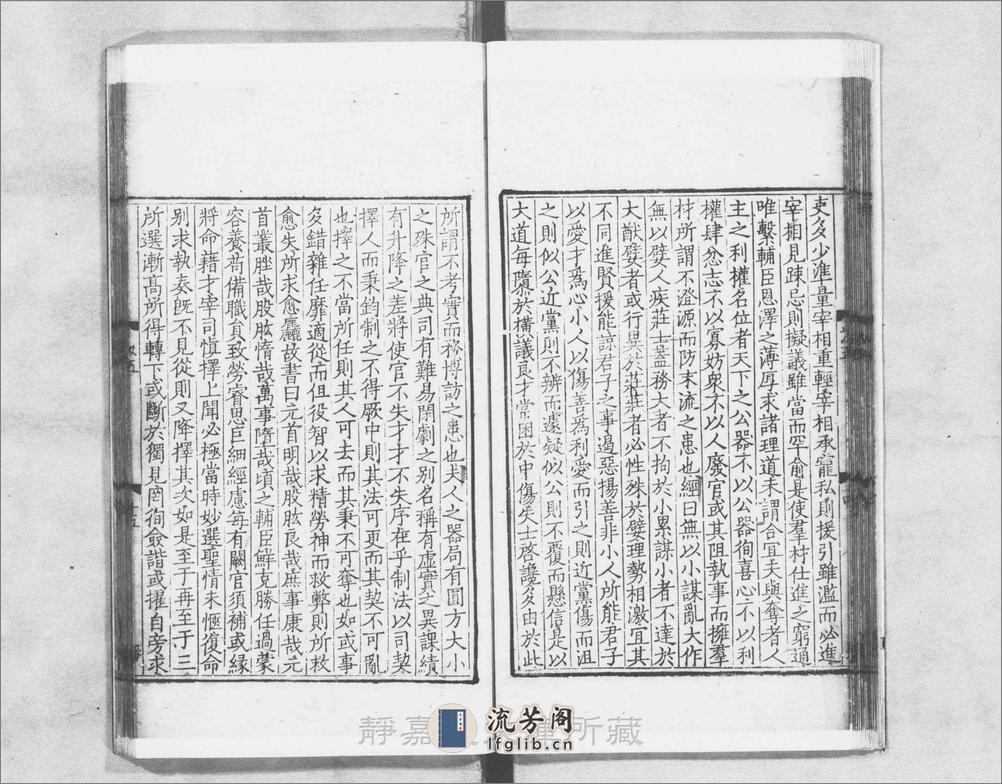 吏多少準量宰相重輕宰相承寵私則援引雖濫而必進
宰相見疎忌則擬議雖當而罕俞是使羣材仕進之窮通
唯繫輔臣恩澤之薄厚求諸理道未謂合宜夫與奪者人
主之利權名位者天下之公器不以公器徇喜心不以利
權肆忿志不以寡妨衆不以人廢官或其阻執事而擁羣
材所謂不澄源而防末流之患也經曰無以小謀亂大作
無以嬖人疾莊士盖務大者不拘於小累謀小者不達於
大猷嬖者或行異於莊莊者必性殊於嬖理勢相激宜其
不同進賢援能諒君子之事遏惡揚善非小人所能君子
以愛才爲心小人以傷善爲利愛而引之則近黨傷而沮
之則似公近黨則不辨而遽疑似公則不覆而懸信是以
大道每隳於橫議良才常困於中傷失士啓讒多由於此
所謂不考實而務博訪之患也夫人之器局有圓方大小
之殊官之典司有難易閑劇之别名稱有虛實之異課績
有升降之差將使官不失才才不失序在乎制法以司契
擇人而秉鈞制之不得厥中則其法可更而其契不可亂
也擇之不當所任則其人可去而其秉不可奪也如或事
多錯雜任靡適從而但役智以求精勞神而救弊則所救
愈失所求愈麤故書曰元首明哉股肱良哉庶事康哉元
首叢脞哉股肱惰哉萬事墮哉頃之輔臣鮮克勝任過蒙
容養苟備職員致勞睿思巨細經慮每有闕官須補或緣
將命藉才宰司慎擇上聞必極當時妙選聖情未愜復命
别求執奏旣不見從則又降擇其次如是至于再至于三
所選漸高所得轉下或斷於獨見罔徇僉諧或擢自旁求
靜嘉 所藏
流芳阁
lfglib.cn